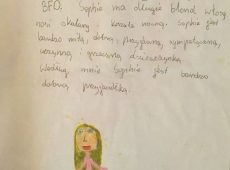 BFG. Sophie ma długie blond włosy
nosi okulary i koszule nocną. Sophie jest
bardzo miłą, dobrą, przyjazną, sympatyczną,
uczynną i grzeczną dziewczynką.
Według mnie Sophie jest bardzo
dobrą przyjaciółką.